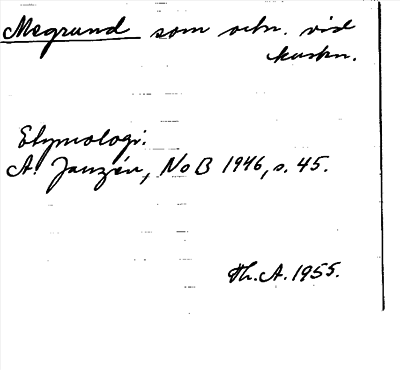 Megrund som ortn. vid
kusten.
Etymologi.
A. Janzén, NoB 1946, s. 45.
Th. A. 1955.